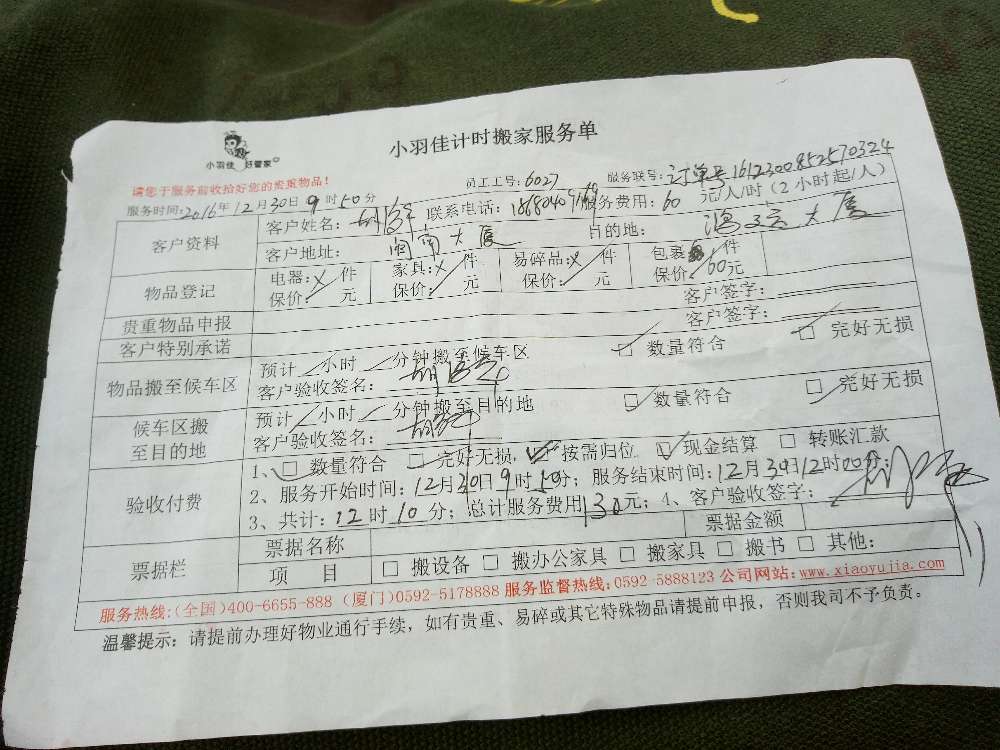 小羽佳 好管家
小羽佳计时搬家服务单
请您于服务前收拾好您的贵重物品!
员工工号:6027
服务联号:订单号1612300852570324
服务时间:2016年12月30日9时50分
服务费用:60元/人/时(2小时起/人)
客户资料
客户姓名:
联系电话:
客户地址:闽南大厦
目的地:
物品登记
电器: 件
保价: 元
家具: 件
保价: 元
易碎品: 件
保价: 元
包裹 件
保价: 60元
贵重物品申报
客户签字:
客户特别承诺
客户签字:
物品搬至候车区
预计 小时 分钟搬至候车区
□ 数量符合
□ 完好无损
客户验收签名:
候车区搬
至目的地
预计 小时 分钟搬至目的地
□ 数量符合
□ 完好无损
客户验收签名:
验收付费
1、□ 数量符合 □ 完好无损 □ 按需归位 □ 现金结算 □ 转账汇款
2、服务开始时间:12月30日9时50分;服务结束时间:12月30日12时00分;
3、共计:12时10分;总计服务费用130元;4、客户验收签字:
票据栏
票据名称
票据金额
项 目
□ 搬设备 □ 搬办公家具 □ 搬家具 □ 搬书 □ 其他:
服务热线:(全国)400-6655-888 (厦门)0592-5178888 服务监督热线:0592-5888123 公司网站:www.xiaoyujia.com
温馨提示:请提前办理好物业通行手续,如有贵重、易碎或其它特殊物品请提前申报,否则我司不予负责。